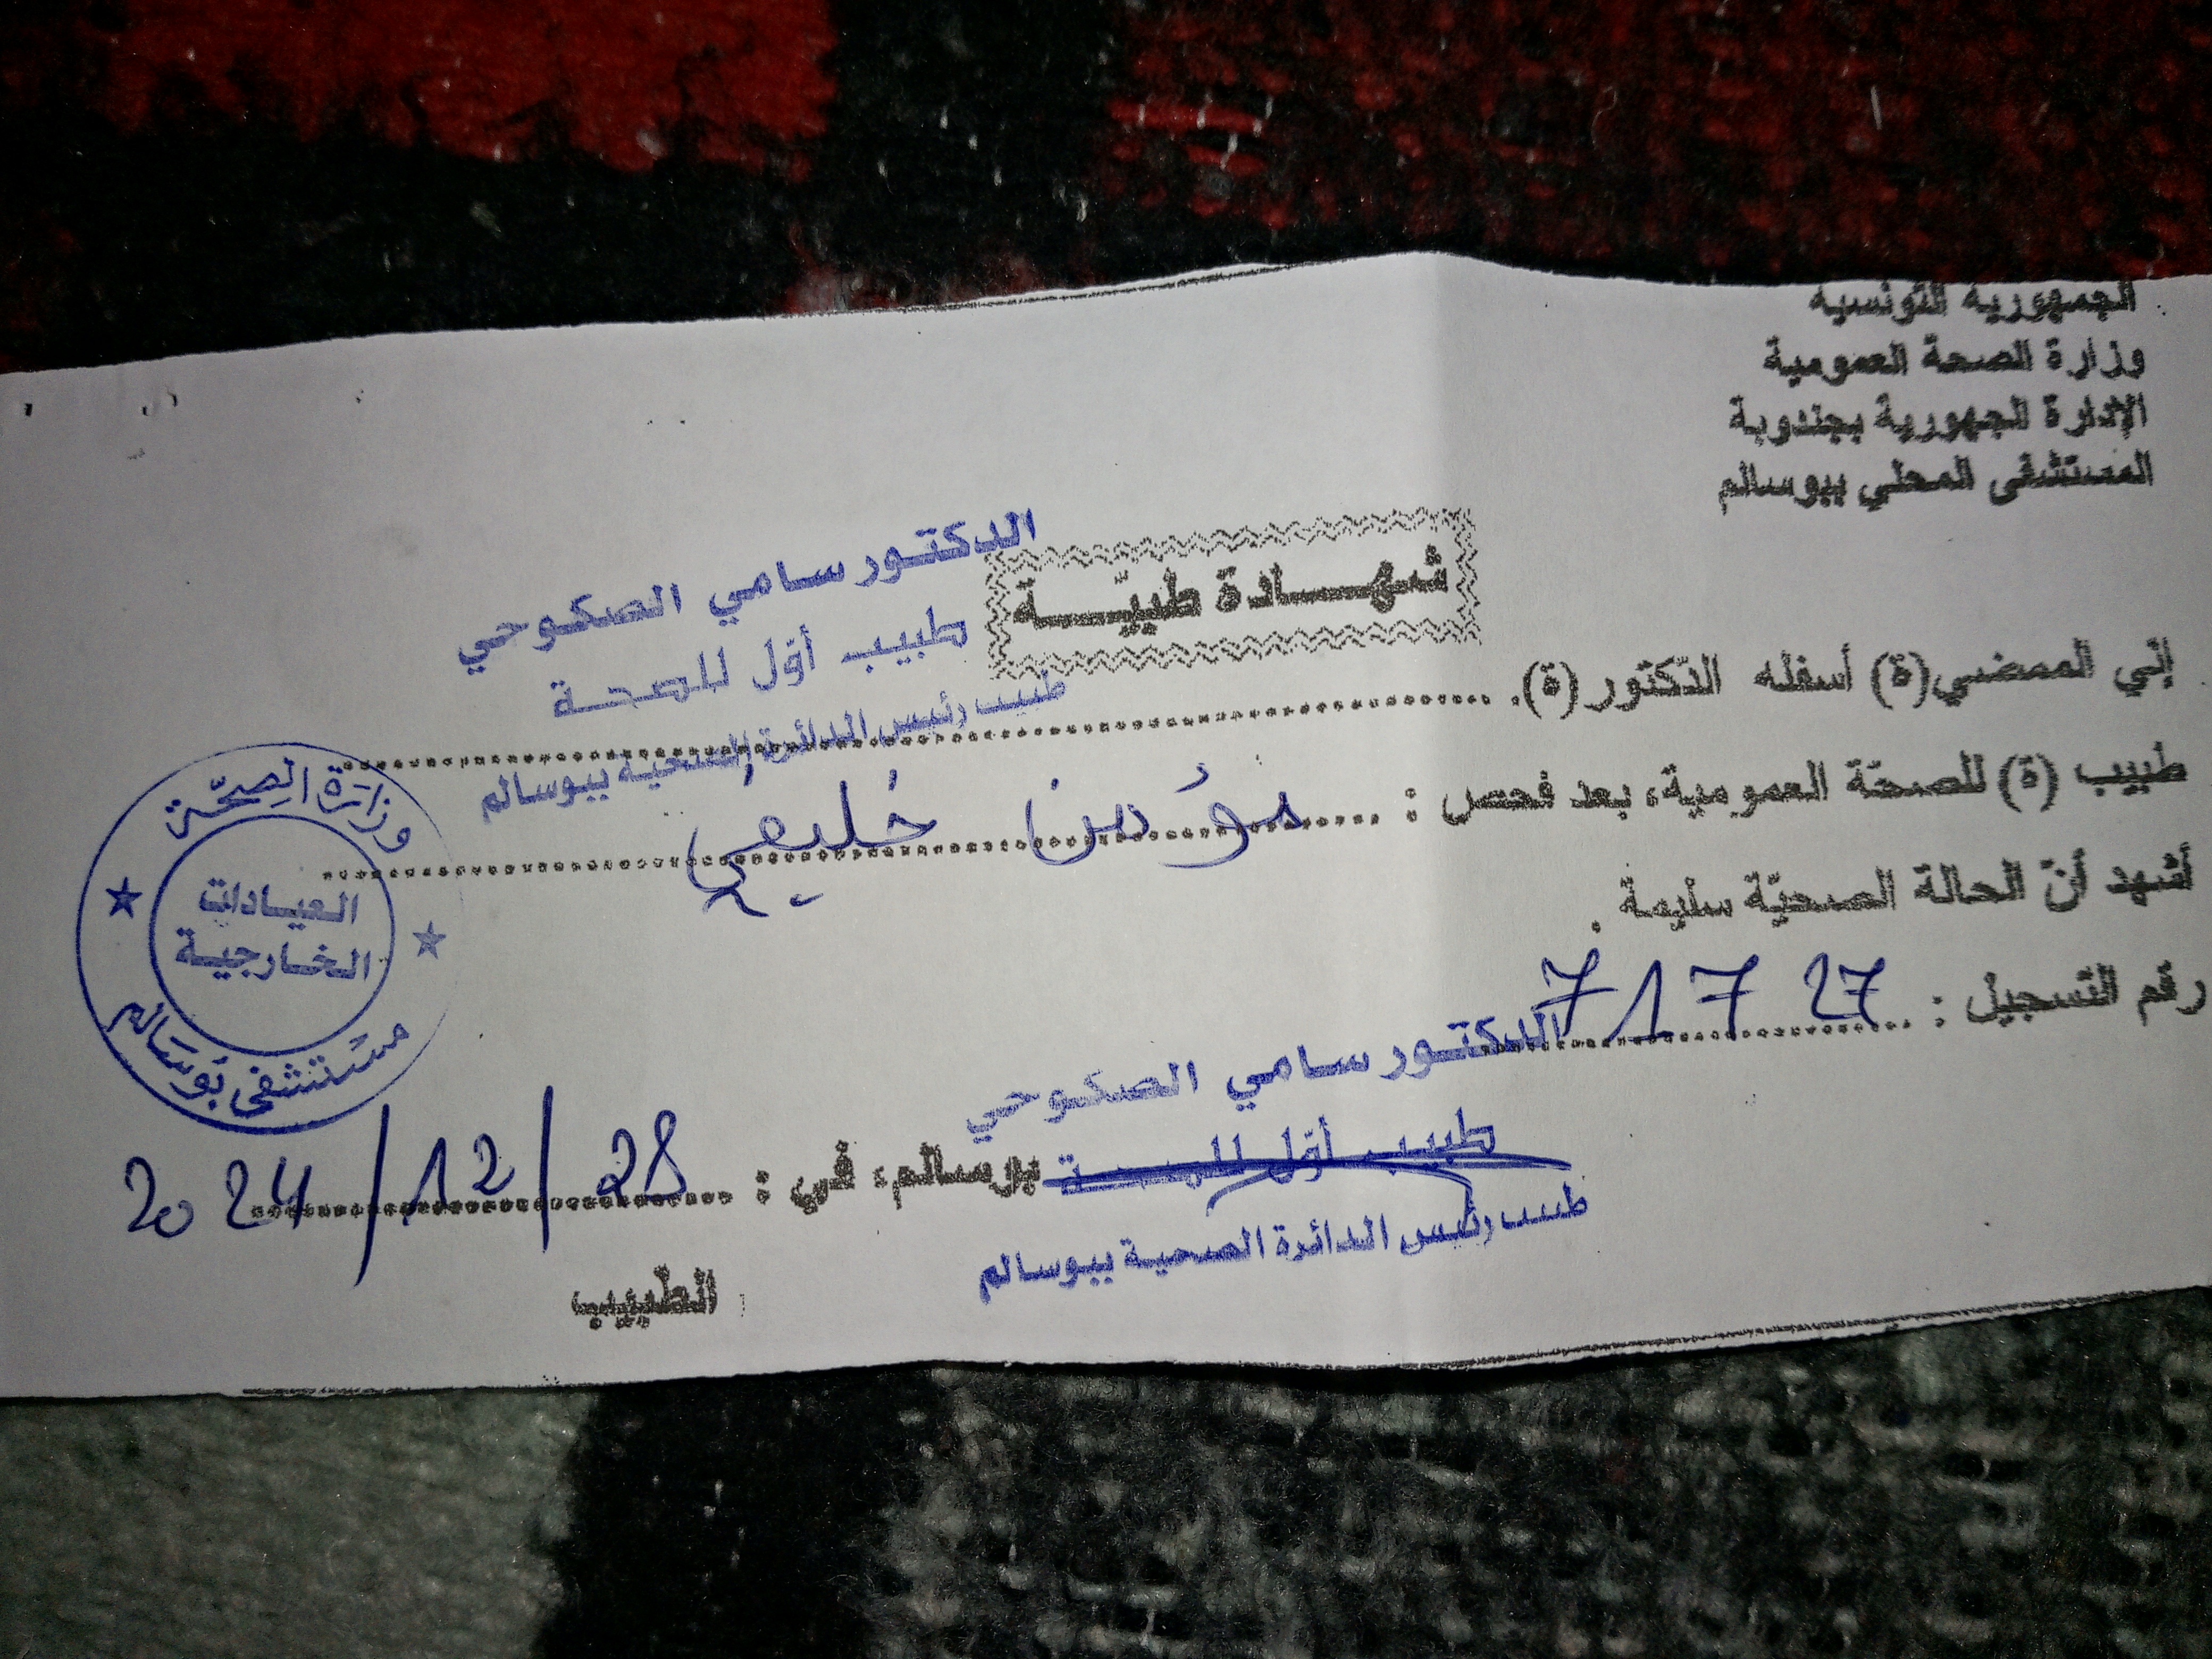 الجمهورية التونسية
وزارة الصحة العمومية
الإدارة الجهورية بجندوبة
المستشفى المحلي ببوسالم
شهـــادة طبيّـــة
الدكتور سامي الصكوحي
طبيب أوّل للصحة
طبيب رئيس الدائرة الصحية ببوسالم
إني الممضي(ة) أسفله الدّكتور(ة).
طبيب (ة) للصحّة العمومية، بعد فحص : مؤمن خليفي
أشهد أنّ الحالة الصحيّة سليمة .
رقم التسجيل : 71727
الدكتور سامي الصكوحي
طبيب أوّل للصحة
طبيب رئيس الدائرة الصحية ببوسالم
بوسالم، في : 28/12/2024
الطّبيب
وزارة الصحّة
العيادات
الخارجية
مستشفى بوسالم